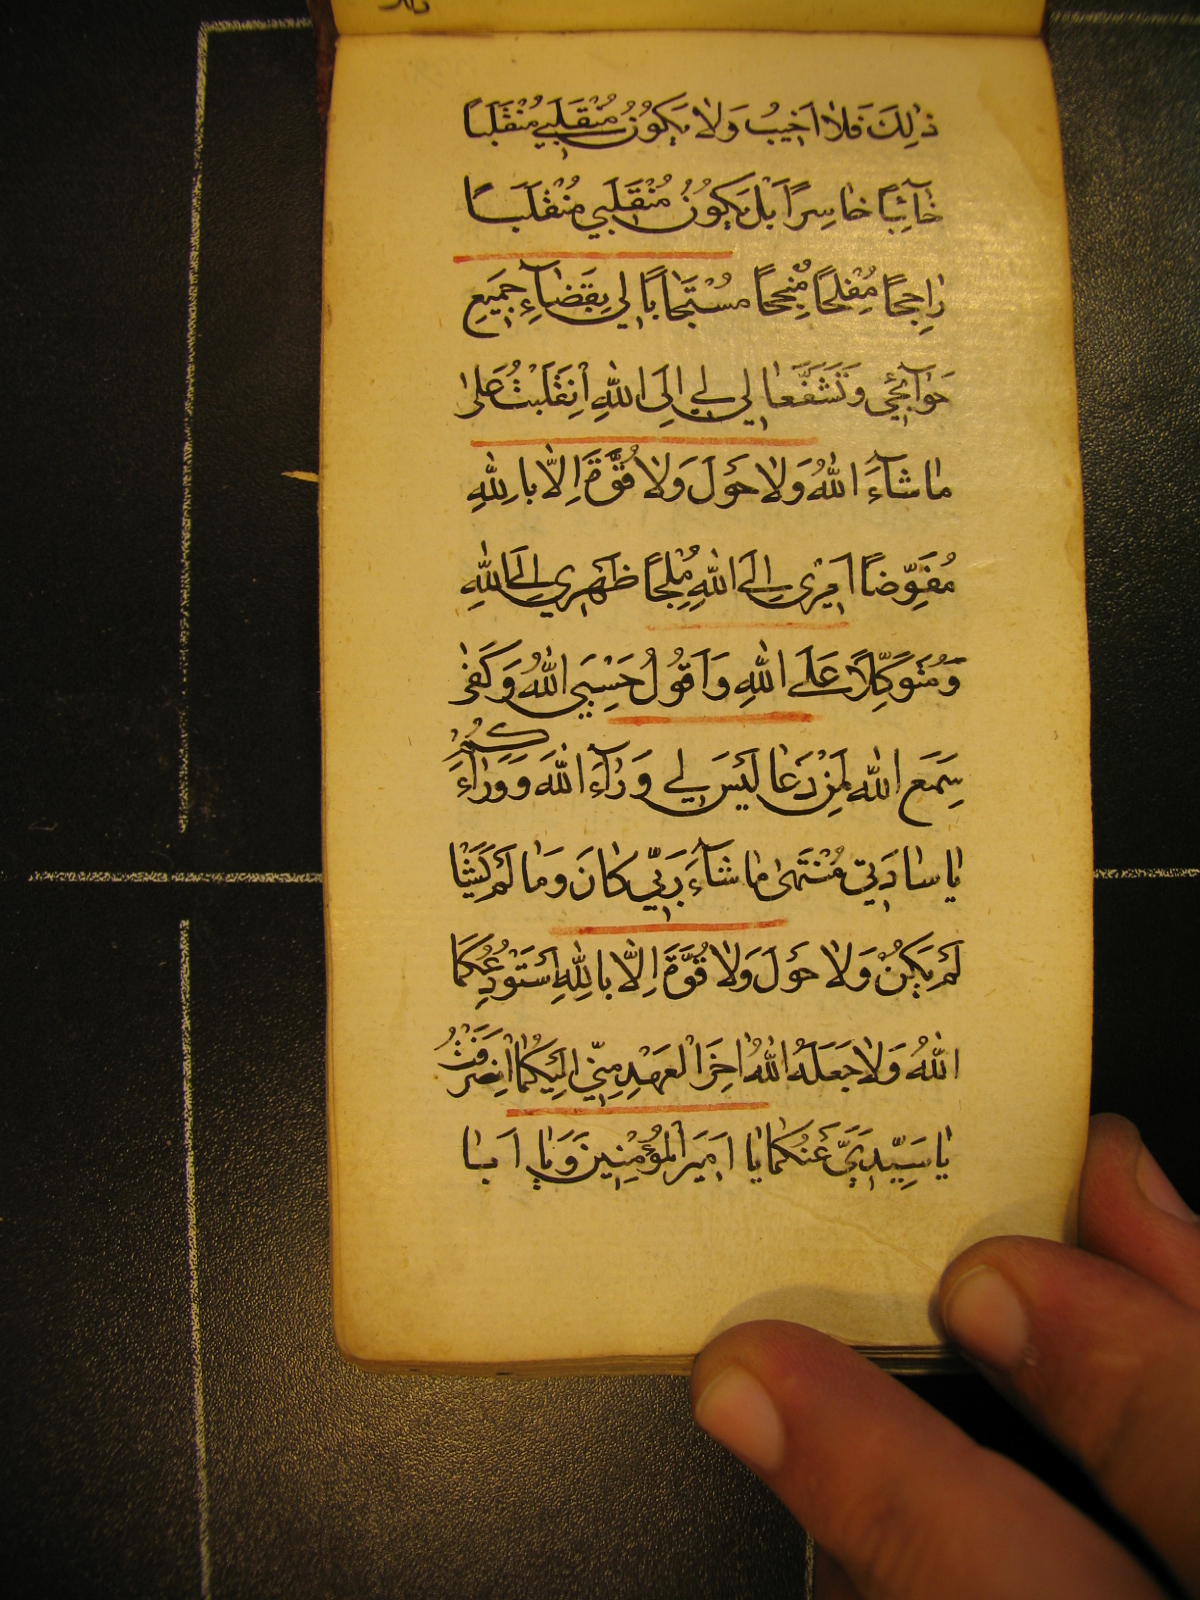 ذٰلِكَ فَلاٰ اَخيبُ وَلاٰ يَكوُنُ مُنْقَلَبي مُنْقَلَباً
خٰآئِباً خٰاسِراً بَلْ يَكوُنُ مُنْقَلَبي مُنْقَلَباً
رٰاجِحاً مُفْلِحاً مُنْجِحاً مُسْتَجٰاباً لي بِقَضٰآءِ جَميعِ
حَوٰآئِجي وَتَشَفَّعٰا لي اِلَى اللّٰهِ اِنْقَلَبْتُ عَلىٰ
مٰا شٰآءَ اللّٰهُ وَلاٰ حَوْلَ وَلاٰ قُوَّةَ اِلاّٰ بِاللّٰهِ
مُفَوِّضاً اَمْري اِلَى اللّٰهِ مُلْجِاً ظَهْري اِلَى اللّٰهِ
وَمُتَوَكِّلاً عَلَى اللّٰهِ وَاَقوُلُ حَسْبِيَ اللّٰهُ وَكَفىٰ
سَمِعَ اللّٰهُ لِمَنْ دَعٰا لَيْسَ لي وَرٰآءَ اللّٰهِ وَوَرٰآءَكُمْ
يٰا سٰادَتي مُنْتَهىٰ مٰا شٰآءَ رَبّي كٰانَ وَمٰا لَمْ يَشَاْ
لَمْ يَكُنْ وَلاٰ حَوْلَ وَلاٰ قُوَّةَ اِلاّٰ بِاللّٰهِ اَسْتَوْدِعُكُمَا
اللّٰهُ وَلاٰ جَعَلَهُ اللّٰهُ اٰخِرَ الْعَهْدِ مِنّي اِلَيْكُمٰا اِنْصَرَفْتُ
يٰا سَيِّدَيَّ عَنْكُمٰا يٰا اَميرَ الْمُؤْمِنينَ وَيٰا اَبٰا